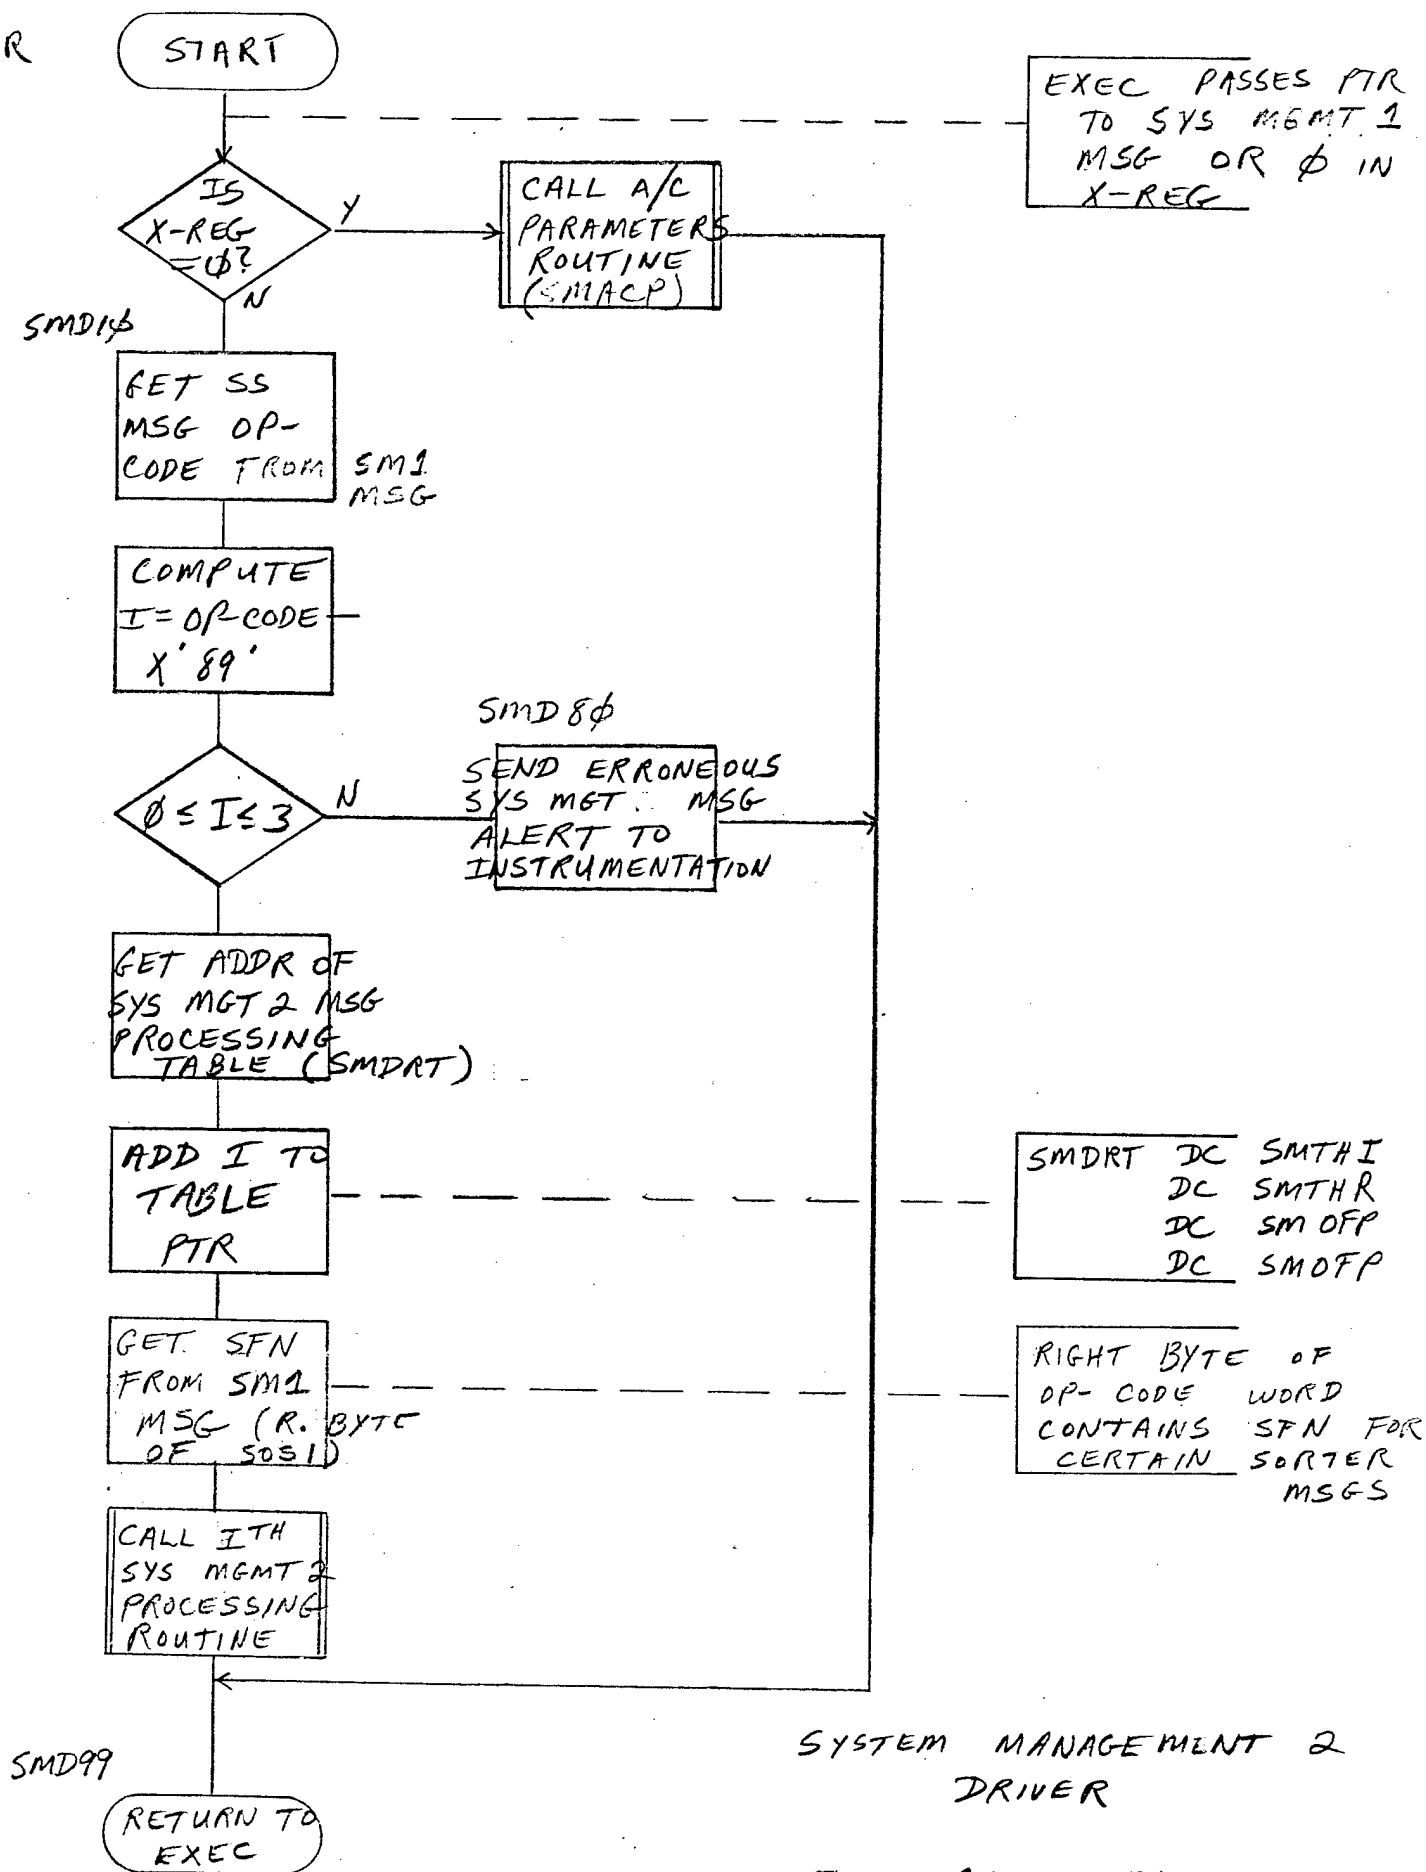 R
START
EXEC PASSES PTR
TO SYS MGMT 1
MSG OR Ø IN
X-REG
IS
X-REG
=Ø?
Y
N
CALL A/C
PARAMETERS
ROUTINE
(SMACP)
SMD1Ø
GET SS
MSG OP-
CODE FROM SM1
MSG
COMPUTE
I=OP-CODE—
X'89'
Ø ≤ I ≤ 3
N
SMD8Ø
SEND ERRONEOUS
SYS MGT. MSG
ALERT TO
INSTRUMENTATION
GET ADDR OF
SYS MGT 2 MSG
PROCESSING
TABLE (SMDRT)
ADD I TO
TABLE
PTR
SMDRT DC SMTHI
DC SMTHR
DC SMOFP
DC SMOFP
GET SFN
FROM SM1
MSG (R. BYTE
OF SOS1)
RIGHT BYTE OF
OP-CODE WORD
CONTAINS SFN FOR
CERTAIN SORTER
MSGS
CALL ITH
SYS MGMT 2
PROCESSING
ROUTINE
SMD99
RETURN TO
EXEC
SYSTEM MANAGEMENT 2
DRIVER